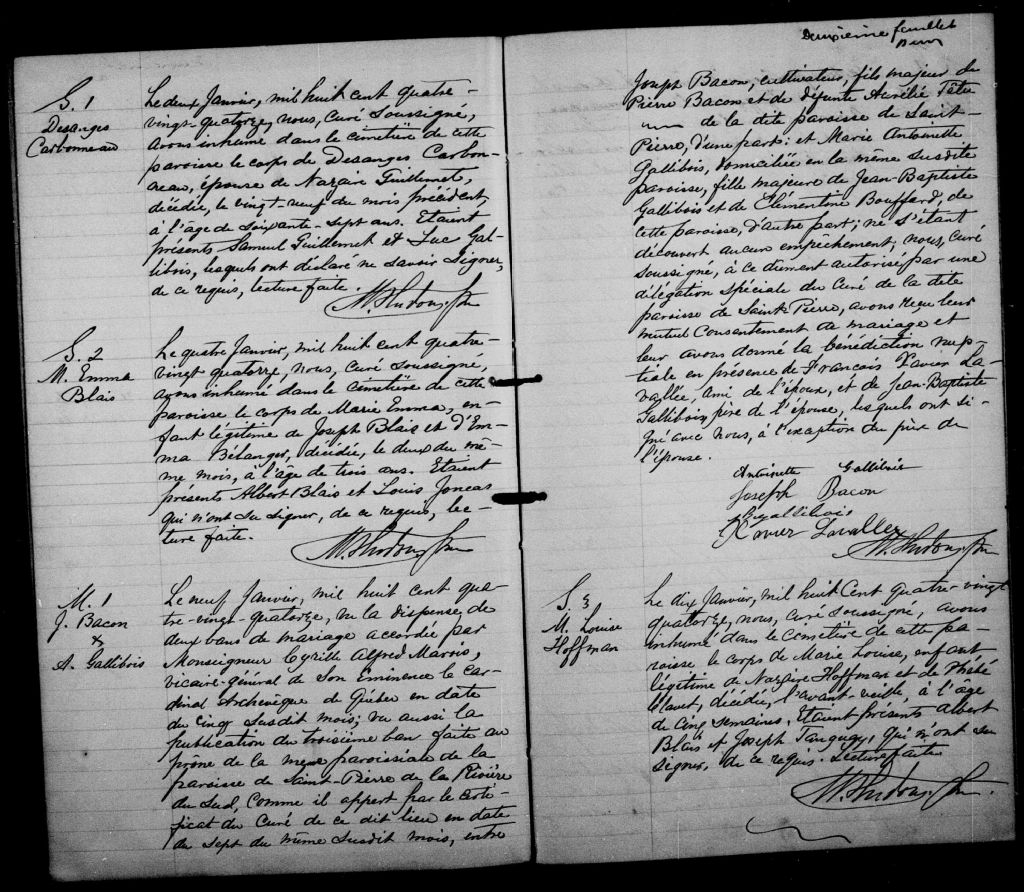 S. 1
Desanges
Carbonneau
Le deux Janvier, mil huit cent quatre-
vingt-quatorze, nous, Curé Soussigné,
avons inhumé dans le cimetière de cette
paroisse le corps de Desanges Carbon-
neau, épouse de Nazaire Guillemet,
décédée, le vingt-neuf du mois précédent,
à l'âge de soixante-sept ans. Etaient
présents Samuel Guillemet et Luc Gal-
libois, lesquels ont déclaré ne savoir signer,
de ce requis, lecture faite.
S. 2
M. Emma
Blais
Le quatre Janvier, mil huit cent quatre-
vingt quatorze, nous, curé soussigné,
avons inhumé dans le cimetière de cette
paroisse le corps de Marie Emma, en-
fant légitime de Joseph Blais et d'Em-
ma Bélanger, décédée, le deux du mê-
me mois, à l'âge de trois ans. Etaient
présents Albert Blais et Louis Joncas
qui n'ont su signer, de ce requis, lec-
ture faite.
M. 1
J. Bacon
&
A. Gallibois
Le neuf Janvier, mil huit cent qua-
tre-vingt-quatorze, vu la dispense de
deux bans de mariage accordée par
Monseigneur Cyrille Alfred Marois,
vicaire-général de Son Eminence le Car-
dinal Archevêque de Québec en date
du cinq susdit mois; vu aussi la
publication du troisième ban faite au
prône de la messe paroissiale de la
paroisse de Saint-Pierre de la Rivière
du Sud, comme il appert par le certi-
ficat du Curé de ce dit lieu en date
du sept du même susdit mois, entre
Deuxième feuillet
Joseph Bacon, cultivateur, fils majeur de
Pierre Bacon et de défunte Aurélie Têtu
de la dite paroisse de Saint-
Pierre, d'une part; et Marie Antoinette
Gallibois, domiciliée en la même susdite
paroisse, fille majeure de Jean-Baptiste
Gallibois et de Clémentine Bouffard, de
cette paroisse, d'autre part; ne s'étant
découvert aucun empêchement, nous, curé
soussigné, à ce dûment autorisé par une
délégation spéciale du Curé de la dite
paroisse de Saint-Pierre, avons reçu leur
mutuel consentement de mariage et
leur avons donné la bénédiction nup-
tiale en présence de Francois Xavier La-
vallée, ami de l'époux, et de Jean-Baptiste
Gallibois, père de l'épouse, lesquels ont si-
gné avec nous, à l'exception du père de
l'épouse.
Antoinette Gallibois
Joseph Bacon
Xavier Lavallee
S. 3
M. Louise
Hoffman
Le dix Janvier, mil huit Cent quatre-vingt
quatorze, nous, curé soussigné, avons
inhumé dans le Cimetière de cette pa-
roisse le corps de Marie Louise, enfant
légitime de Nazaire Hoffman et de Phébé
décédée, l'avant-veille, à l'âge
de cinq semaines. Etaient présents Albert
Blais et Joseph Tanguay, qui n'ont su
signer, de ce requis. Lecture faite